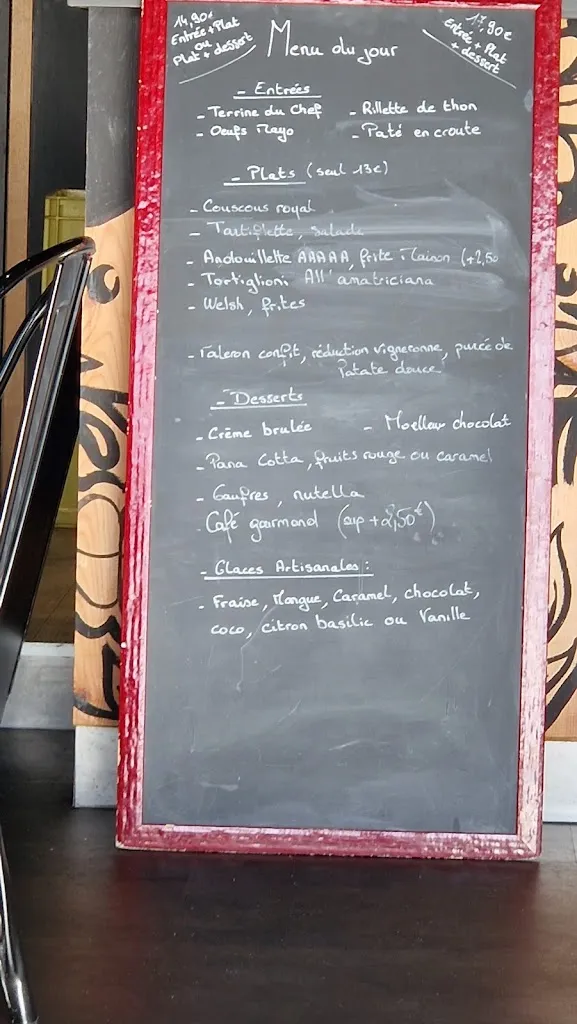 14,90€
Entrée + Plat
ou
Plat + dessert
Menu du jour
17,90€
Entrée + Plat
+ dessert
- Entrées
- Terrine du Chef - Rillette de thon
- Oeufs Mayo - Paté en croute
- Plats (seul 13€)
- Couscous royal
- Tartiflette, salade
- Andouillette AAAAA, frite Maison (+2,50
- Tortiglioni All'amatriciana
- Welsh, frites
- Paleron confit, réduction vigneronne, purée de
Patate douce
- Desserts
- Crème brulée - Moelleux chocolat
- Pana Cotta, fruits rouge ou caramel
- Gaufres, nutella
- Café gourmand (sup +2,50€)
- Glaces Artisanales :
- Fraise, Mangue, Caramel, chocolat,
coco, citron basilic ou Vanille